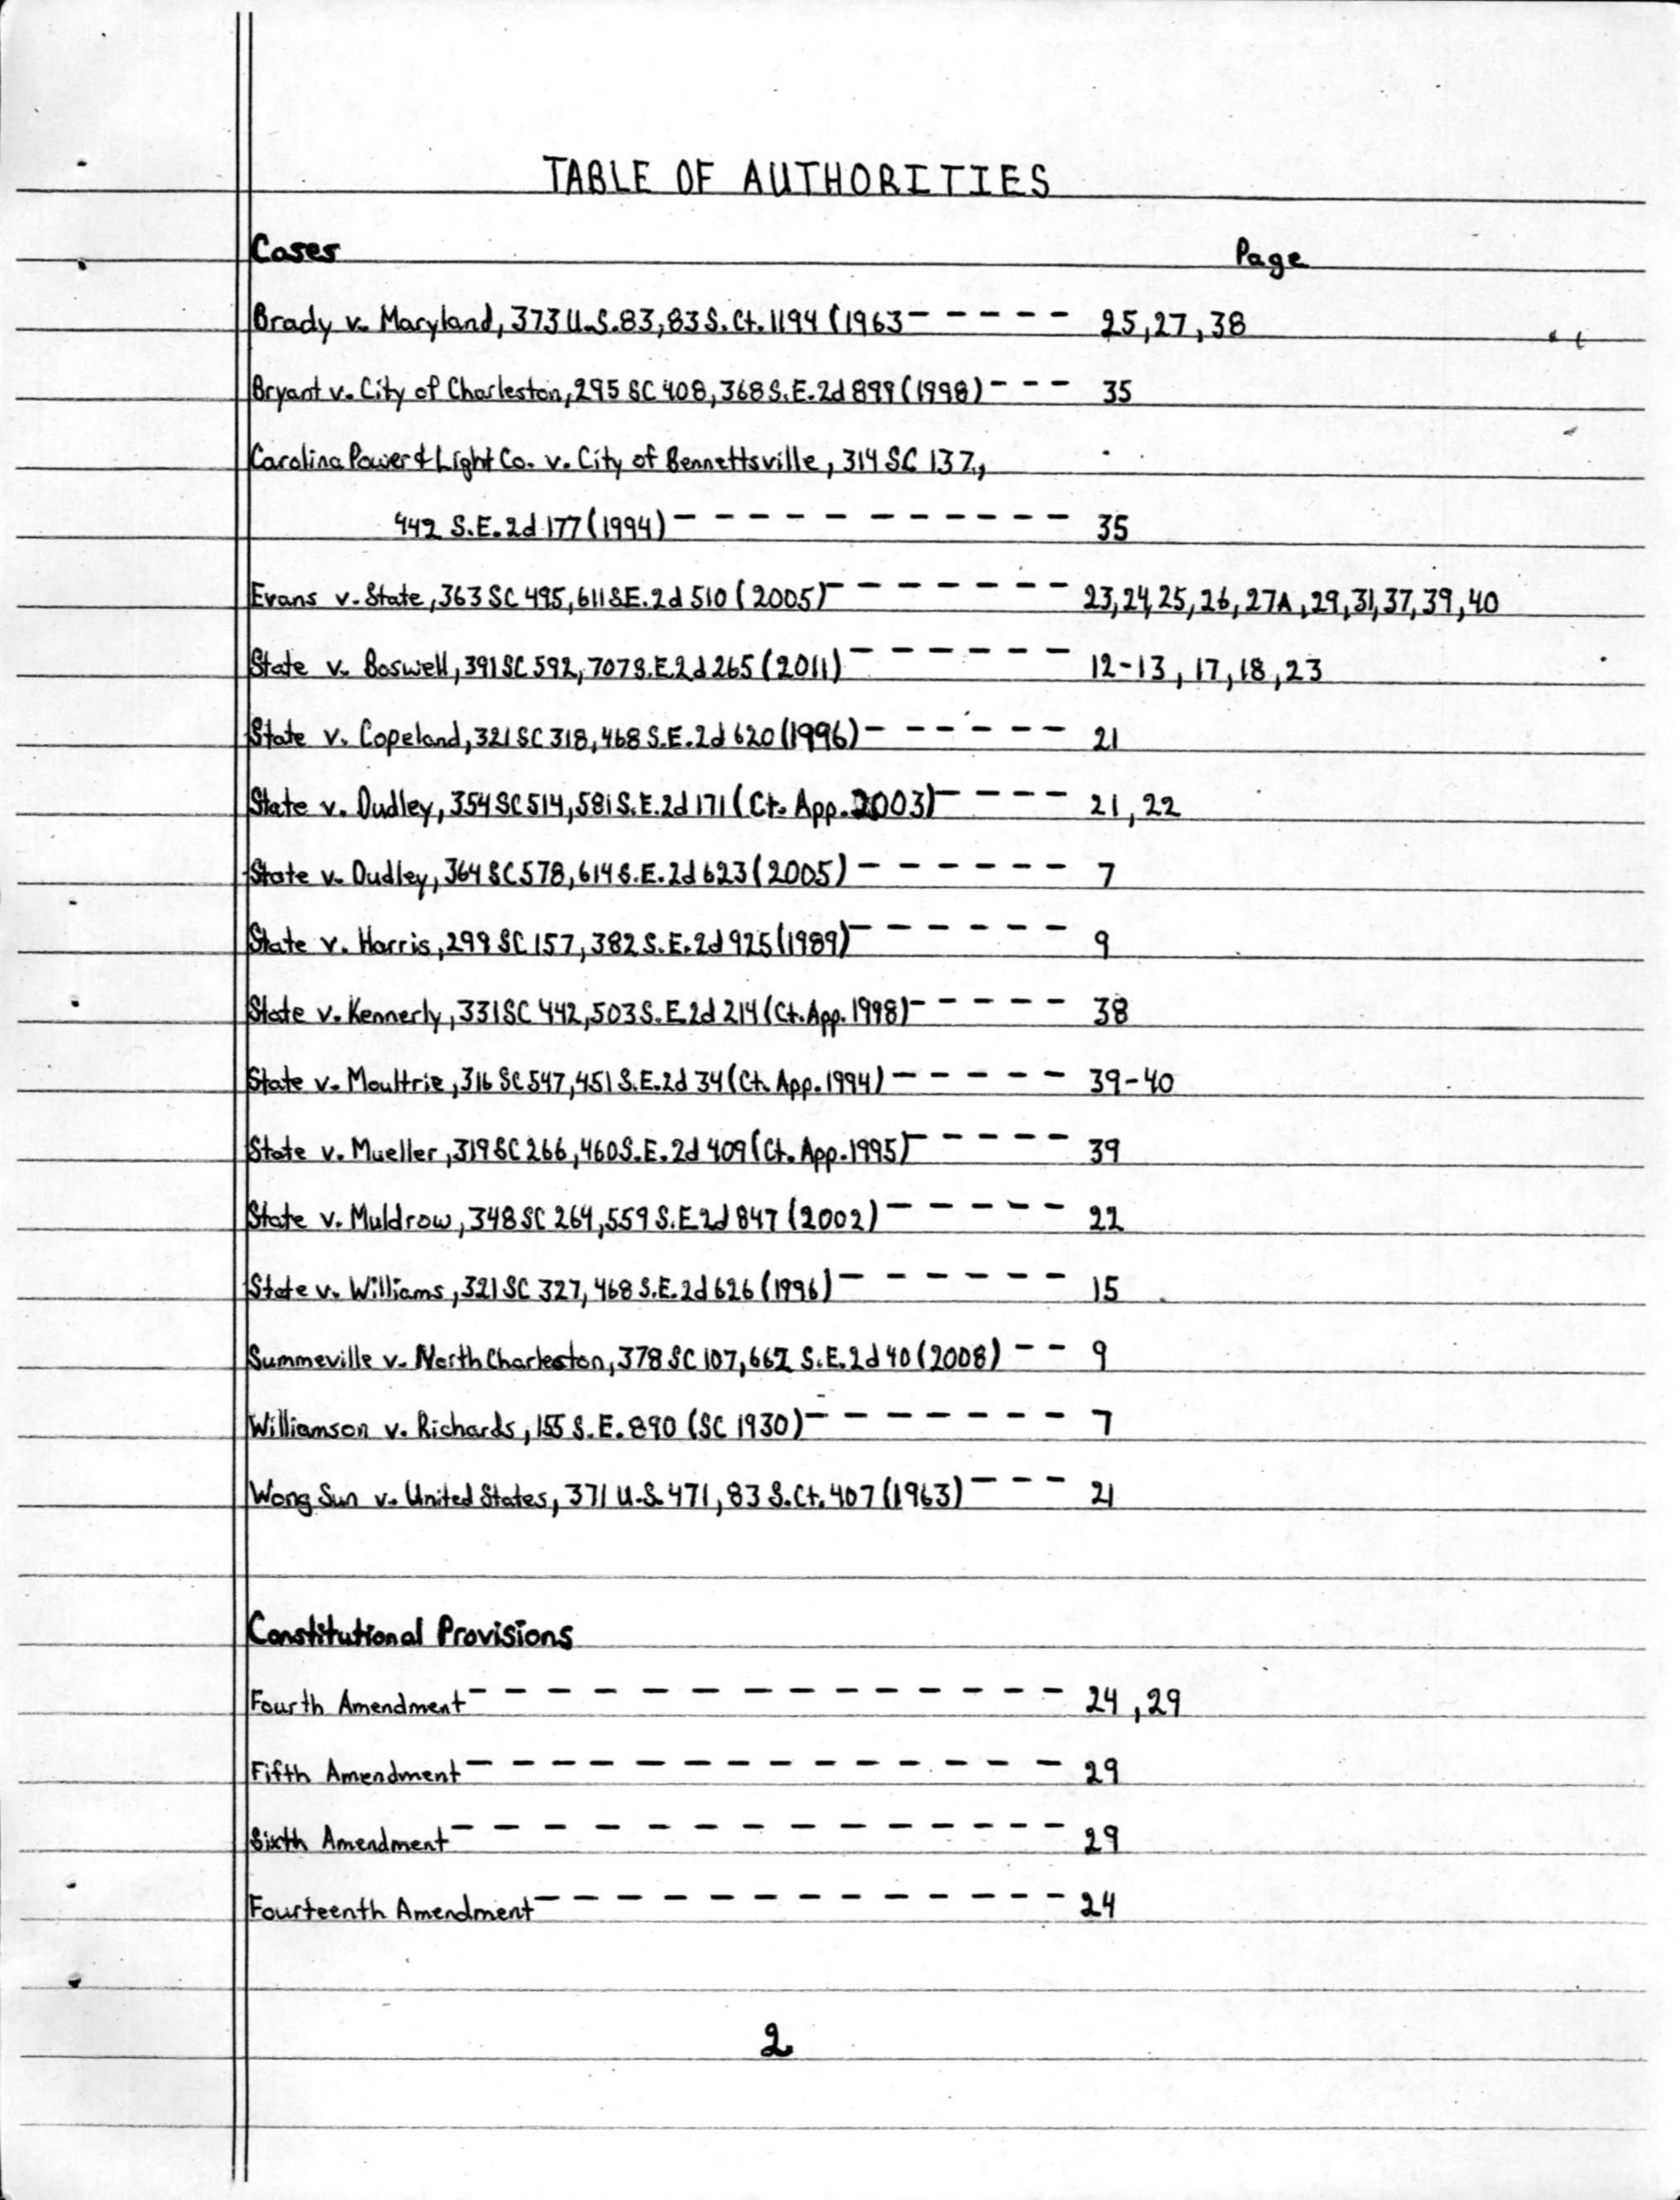 TABLE OF AUTHORITIES
Cases Page
Brady v. Maryland, 373 U.S. 83, 83 S. Ct. 1194 (1963 - - - - - 25, 27, 38
Bryant v. City of Charleston, 295 SC 408, 368 S.E. 2d 899 (1998) - - - 35
Carolina Power & Light Co. v. City of Bennettsville, 314 SC 137,
442 S.E. 2d 177 (1994) - - - - - - - - - - - 35
Evans v. State, 363 SC 495, 611 S.E. 2d 510 (2005) - - - - - - - 23, 24, 25, 26, 27A, 29, 31, 37, 39, 40
State v. Boswell, 391 SC 592, 707 S.E. 2d 265 (2011) - - - - - - 12-13, 17, 18, 23
State v. Copeland, 321 SC 318, 468 S.E. 2d 620 (1996) - - - - - - 21
State v. Dudley, 354 SC 514, 581 S.E. 2d 171 (Ct. App. 2003) - - - - 21, 22
State v. Dudley, 364 SC 578, 614 S.E. 2d 623 (2005) - - - - - - 7
State v. Harris, 299 SC 157, 382 S.E. 2d 925 (1989) - - - - - - 9
State v. Kennerly, 331 SC 442, 503 S.E. 2d 214 (Ct. App. 1998) - - - - - 38
State v. Moultrie, 316 SC 547, 451 S.E. 2d 34 (Ct. App. 1994) - - - - - 39-40
State v. Mueller, 319 SC 266, 460 S.E. 2d 409 (Ct. App. 1995) - - - - - 39
State v. Muldrow, 348 SC 264, 559 S.E 2d 847 (2002) - - - - - 22
State v. Williams, 321 SC 327, 468 S.E. 2d 626 (1996) - - - - - - 15
Summeville v. North Charleston, 378 SC 107, 662 S.E. 2d 40 (2008) - - 9
Williamson v. Richards, 155 S.E. 890 (SC 1930) - - - - - - - 7
Wong Sun v. United States, 371 U.S. 471, 83 S.Ct. 407 (1963) - - - 21
Constitutional Provisions
Fourth Amendment - - - - - - - - - - - - - - 24, 29
Fifth Amendment - - - - - - - - - - - - - - 29
Sixth Amendment - - - - - - - - - - - - - 29
Fourteenth Amendment - - - - - - - - - - - - - 24
2